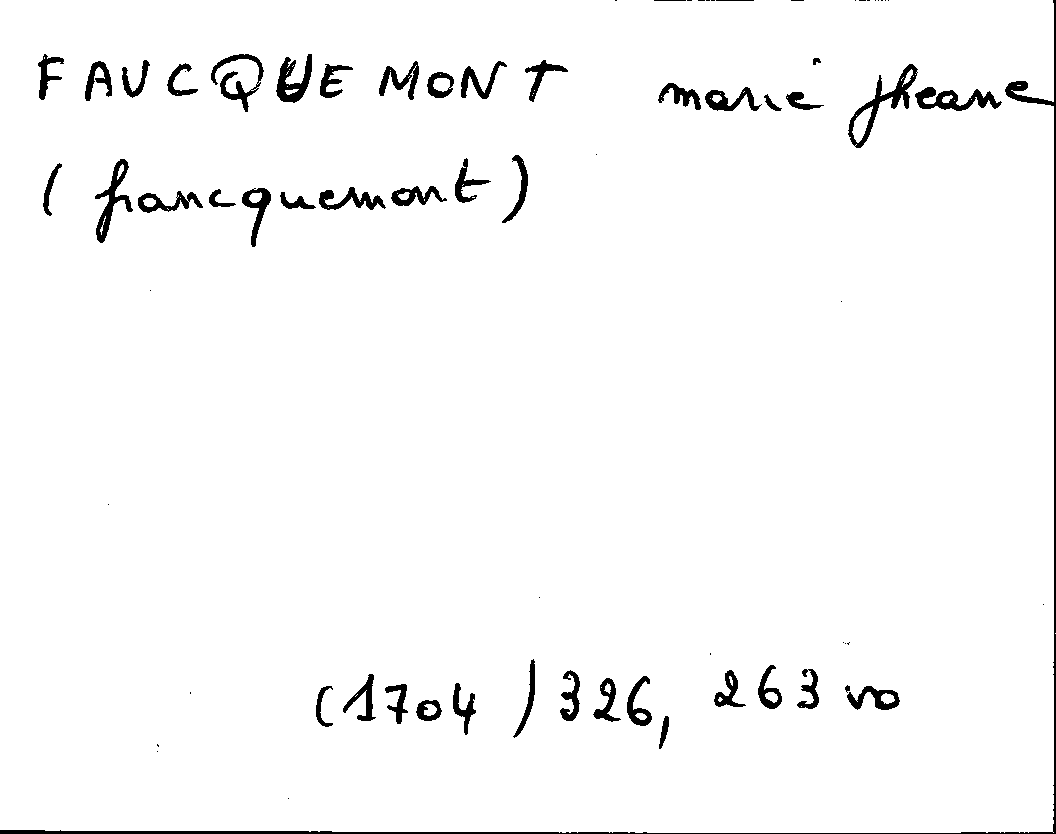 FAUCQUEMONT marie jheane
(francquemont)
(1704) 326, 263 vo